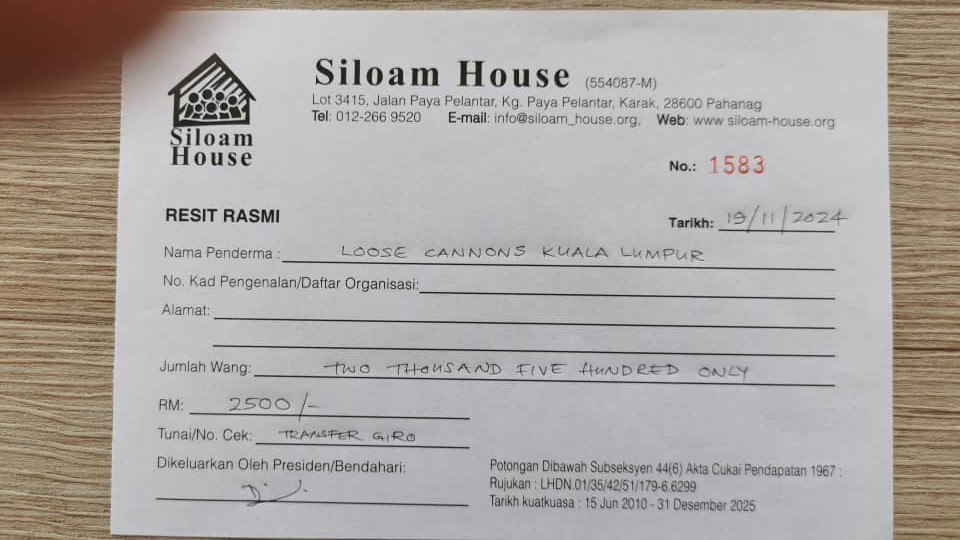 Siloam House (554087-M)
Lot 3415, Jalan Paya Pelantar, Kg. Paya Pelantar, Karak, 28600 Pahanag
Tel: 012-266 9520 E-mail: info@siloam_house.org, Web: www siloam-house.org
Siloam
House
No.: 1583
RESIT RASMI
Tarikh: 19/11/2024
Nama Penderma : LOOSE CANNONS KUALA LUMPUR
No. Kad Pengenalan/Daftar Organisasi:
Alamat:
Jumlah Wang: TWO THOUSAND FIVE HUNDRED ONLY
RM: 2500/-
Tunai/No. Cek: TRANSFER GIRO
Dikeluarkan Oleh Presiden/Bendahari:
Potongan Dibawah Subseksyen 44(6) Akta Cukai Pendapatan 1967 :
Rujukan : LHDN.01/35/42/51/179-6.6299
Tarikh kuatkuasa : 15 Jun 2010 - 31 Desember 2025